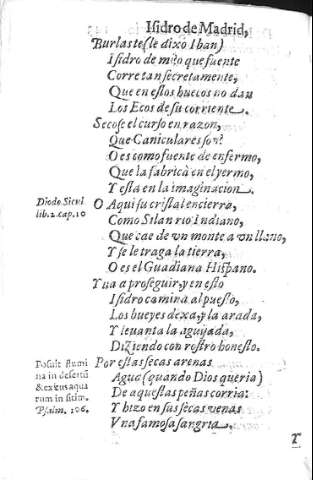 Isidro de Madrid,
Burlaste (le dixo Iban)
Isidro de mi, o que fuente
Corre tan secretamente,
Que en estos huecos no dan
Los Ecos de su corriente.
Secose el curso en razon,
Que Caniculares son?
O es como fuente de enfermo,
Que la fabrica en el yermo,
Y esta en la imaginacion.
Diodo Sicul
lib. 2. cap. 10
O Aqui su cristal encierra,
Como Silan rio Indiano,
Que cae de vn monte a vn llano,
Y se le traga la tierra,
O es el Guadiana Hispano.
Yua a proseguir, y en esto
Isidro camina al puesto,
Los bueyes dexa, y la arada,
Y leuanta la aguijada,
Diziendo con rostro honesto.
Posuit flumi
na in desertū
& exitus aqua
rum in sitim.
Psalm. 106.
Por estas secas arenas
Agua (quando Dios queria)
De aquestas peñas corria:
Y hizo en sus secas venas
Vna famosa sangria.
Y